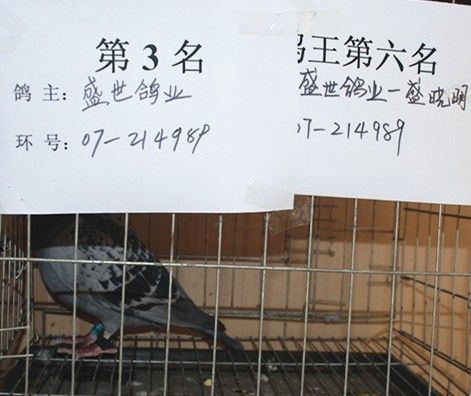 第3名
鸽主：盛世鸽业
环号：07-214989
鸽王第六名
盛世鸽业-盛晓明
07-214989